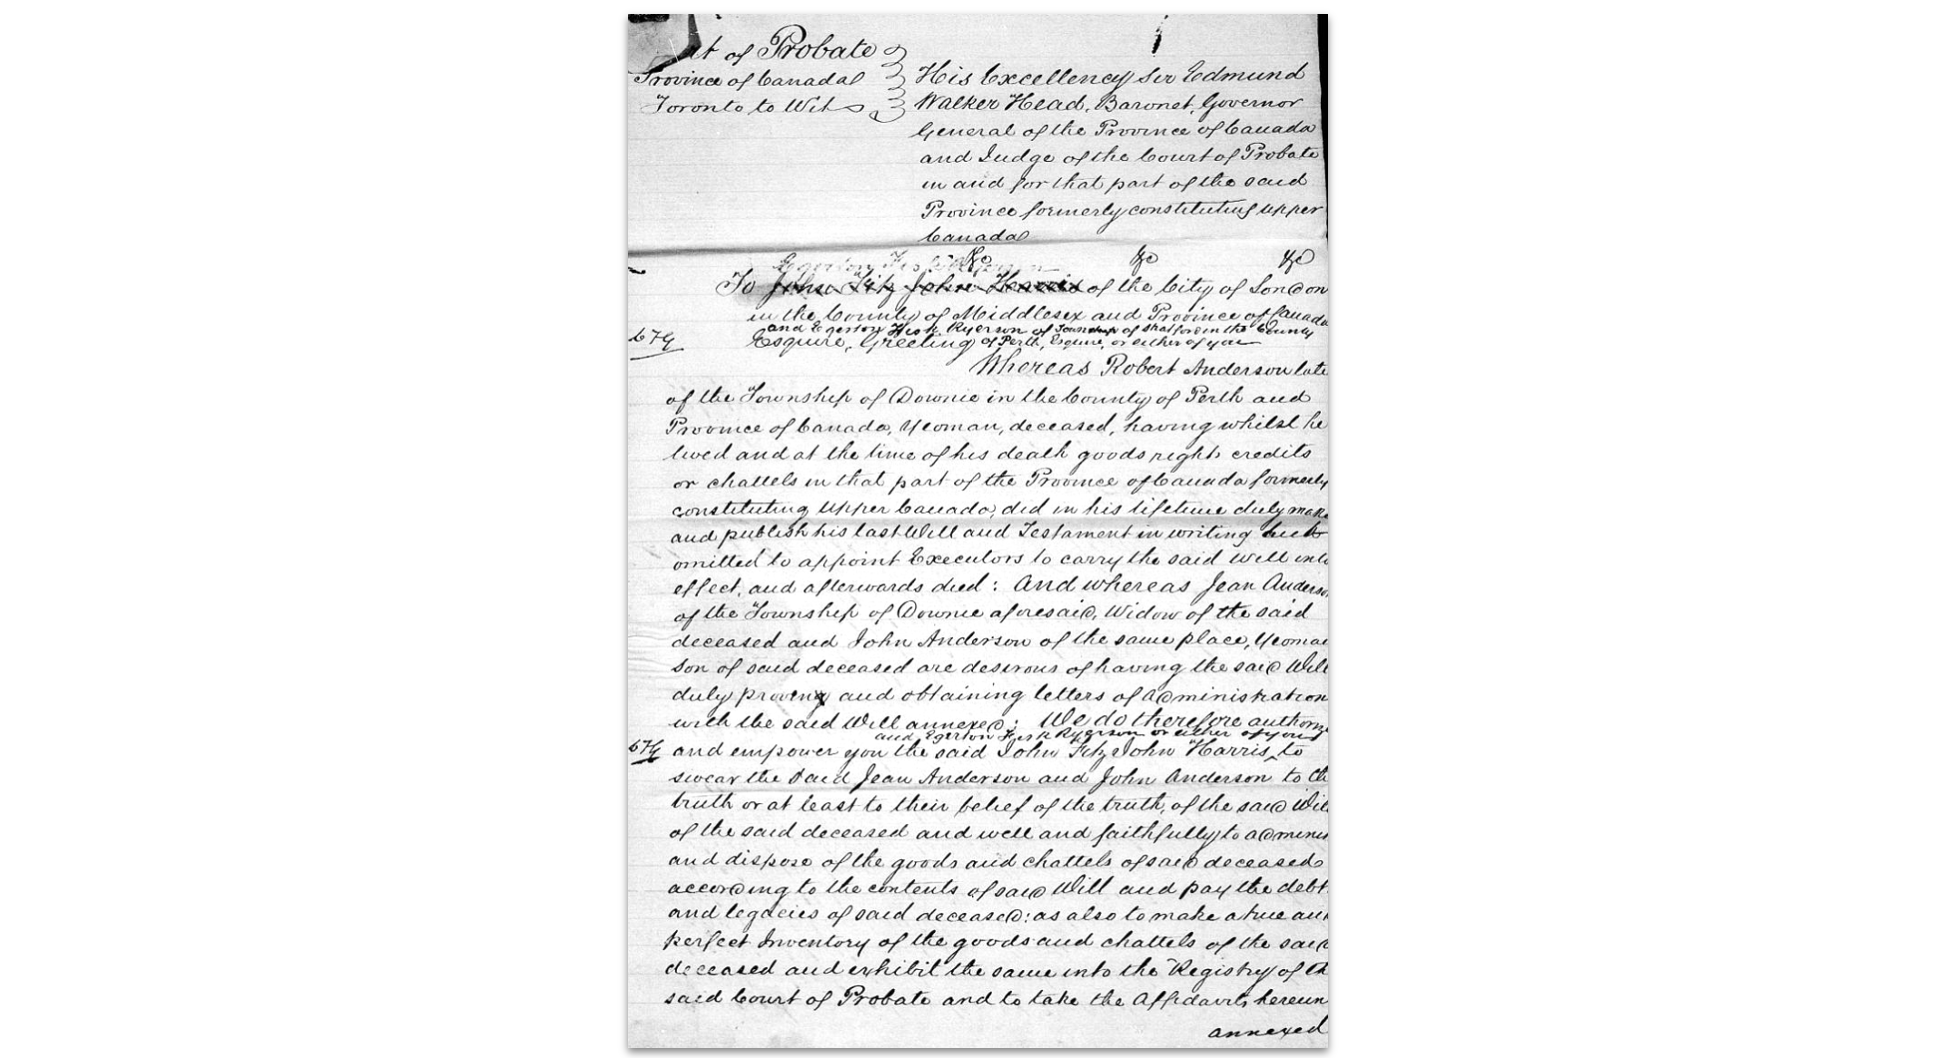 of Probate
Province of Canada
Toronto to Wit
His Excellency Sir Edmund
Walker Head, Baronet, Governor
General of the Province of Canada
and Judge of the Court of Probate
in and for that part of the said
Province formerly constituting Upper
Canada
&c &c &c
Egerton Ryerson
To John Fitz John Harris of the City of London
in the County of Middlesex and Province of Canada
and Egerton Fisk Ryerson of Township of Stratford in the County
Esquire, Greeting of Perth, Esquire, or either of you
Whereas Robert Anderson late
of the Township of Downie in the County of Perth and
Province of Canada, Yeoman, deceased, having whilst he
lived and at the time of his death goods rights credits
or chattels in that part of the Province of Canada formerly
constituting Upper Canada, did in his lifetime duly make
and publish his last Will and Testament in writing but
omitted to appoint Executors to carry the said Will into
effect, and afterwards died: And whereas Jean Anderso
of the Township of Downie aforesaid, Widow of the said
deceased and John Anderson of the same place, Yeoman
son of said deceased are desirous of having the said Will
duly proven and obtaining letters of administration
with the said Will annexed: We do therefore authorize
and Egerton Fisk Ryerson or either of you
and empower you the said John Fitz John Harris ‸ to
swear the said Jean Anderson and John Anderson to th
truth or at least to their belief of the truth, of the said Will
of the said deceased and well and faithfully to adminis
and dispose of the goods and chattels of said deceased
according to the contents of said Will and pay the debt
and legacies of said deceased: as also to make a true an
perfect Inventory of the goods and chattels of the said
deceased and exhibit the same into the Registry of th
said Court of Probate and to take the Affidavits hereun
annexed